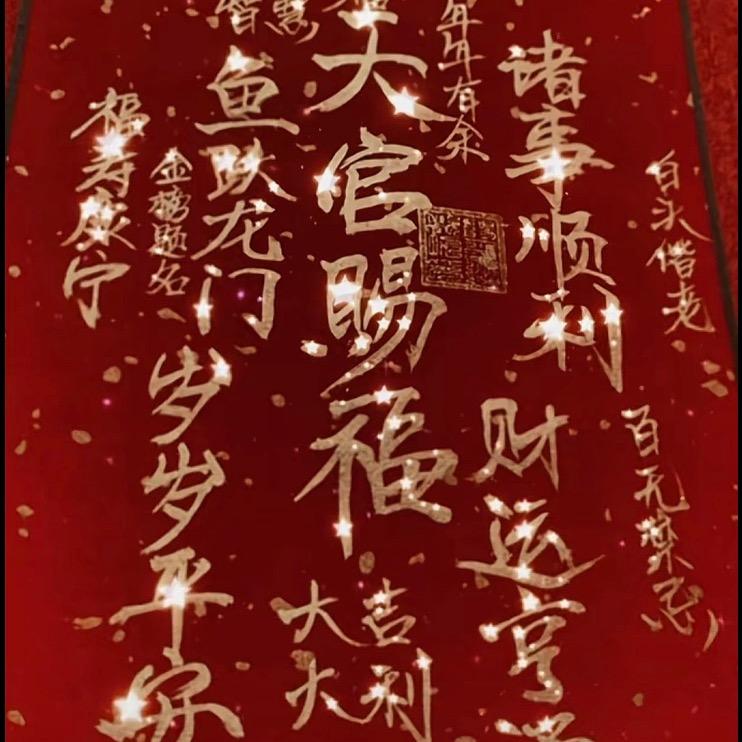 白头偕老
百无禁忌
诸事顺利
财运亨
年年有余
大官赐福
大吉
大利
智慧
鱼跃龙门
金榜题名
岁岁平安
福寿康宁